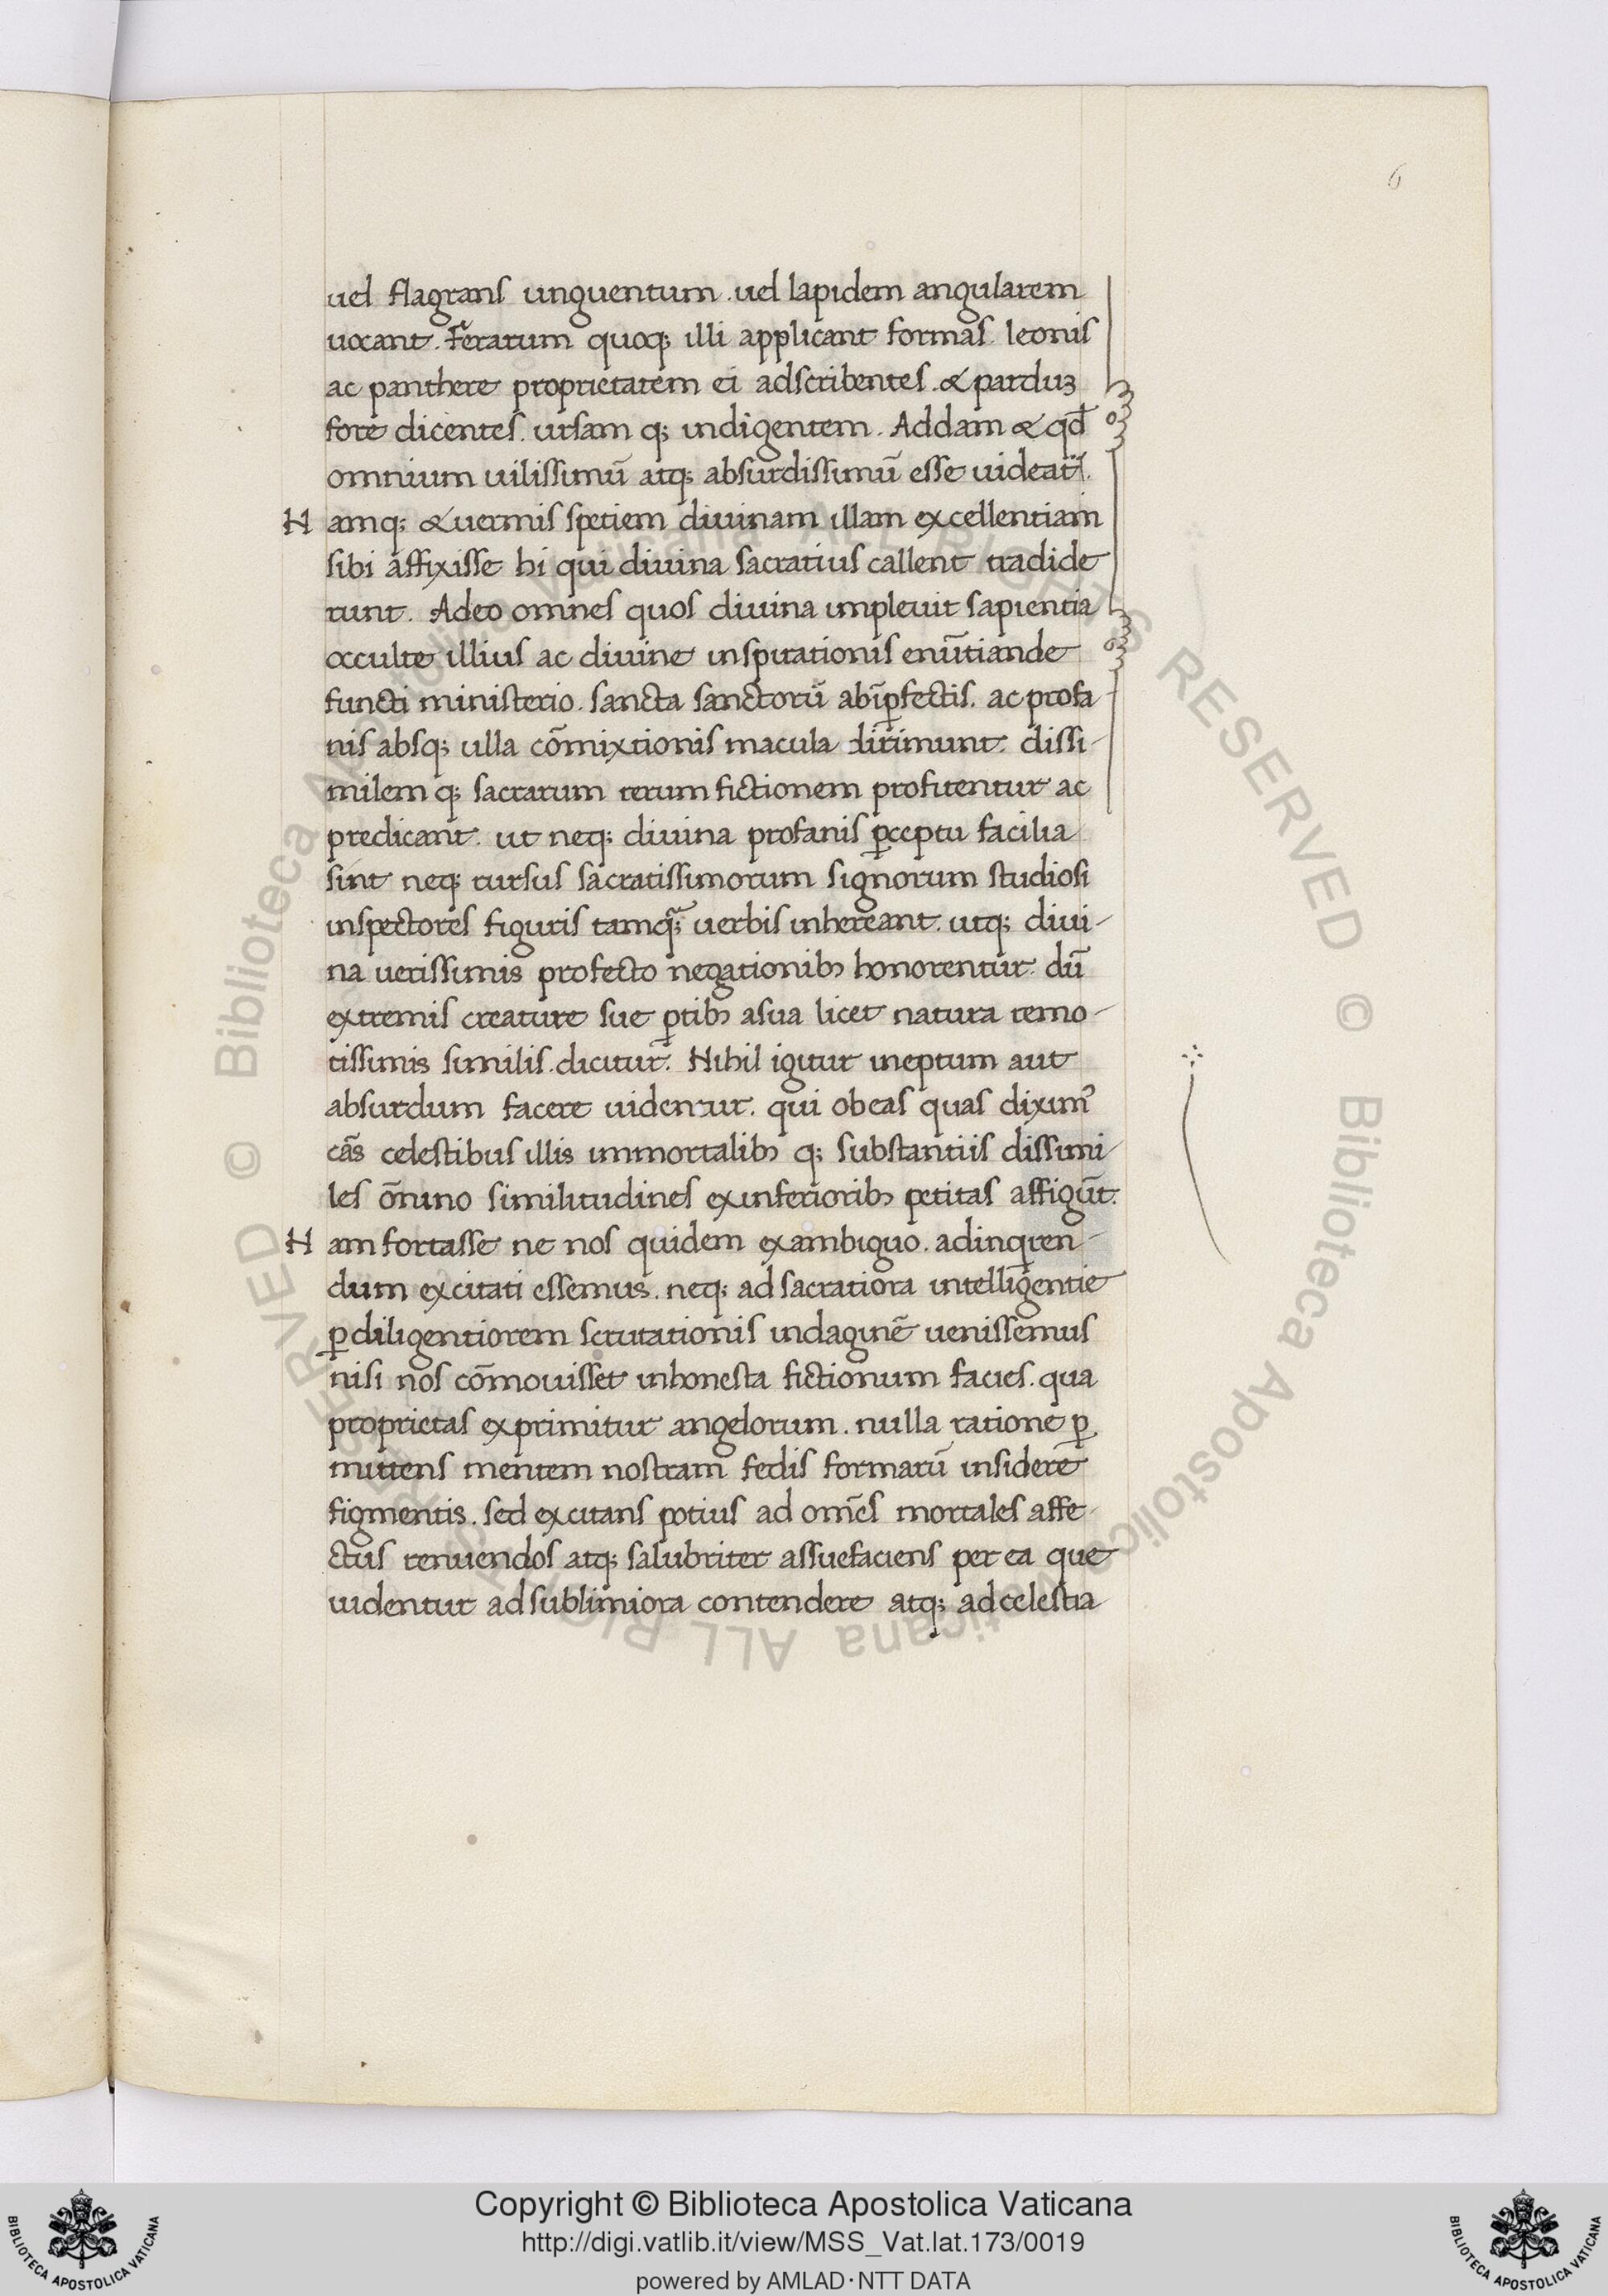 6
uel flagrans unguentum . uel lapidem angularem
uocant . Ferarum quoq; illi applicant formas . leonis
ac panthere proprietatem ei adscribentes . & parduꝫ
fore dicentes . ursam q; indigentem . Addam & qđ
omnium uilissimū atq; absurdissimū esse uideat᷑.
N amq; & uermis spetiem diuinam illam excellentiam
sibi affixisse hi qui diuina sacratius callent tradide
runt . Adeo omnes quos diuina impleuit sapientia
occulte illius ac diuine inspirationis enūtiande
functi ministerio . sancta sanctorū abīꝑfectis . ac profa-
nis absq; ulla cōmixtionis macula dirimunt . dissi-
milem q; sacrarum rerum fictionem profitentur ac
predicant . ut neq; diuina profanis ꝑceptu facilia
sint neq; rursus sacratissimorum signorum studiosi
inspectores figuris tamq̃; uerbis inhereant . utq; diui-
na uerissimis profecto negationibꝫ honorentur . dū
extremis creature sue ꝑtibꝫ asua licet natura remo-
tissimis similis . dicitur. Nihil igitur ineptum aut
absurdum facere uidentur . qui obeas quas diximꝰ
cās celestibus illis immortalibꝫ q; substantiis dissimi-
les ōnino similitudines exinferioribꝫ petitas affigūt.
N am fortasse ne nos quidem exambiguo . adinqren-
dum excitati essemus . neq; ad sacratiora intelligentie
ꝑ diligentiorem scrutationis indaginē uenissemus
nisi nos cōmouisset inhonesta fictionum facies . qua
proprietas exprimitur angelorum . nulla ratione ꝑ
mittens mentem nostram fedis formarū insidere
figmentis . sed excitans potius ad omēs mortales affe-
ctus renuendos atq; salubriter assuefaciens per ea que
uidentur ad sublimiora contendere atq; ad celestia
© Biblioteca Apostolica Vaticana ALL RIGHTS RESERVED
© Biblioteca Apostolica Vaticana ALL RIGHTS RESERVED
Copyright © Biblioteca Apostolica Vaticana
http://digi.vatlib.it/view/MSS_Vat.lat.173/0019
powered by AMLAD·NTT DATA
BIBLIOTECA APOSTOLICA VATICANA
BIBLIOTECA APOSTOLICA VATICANA